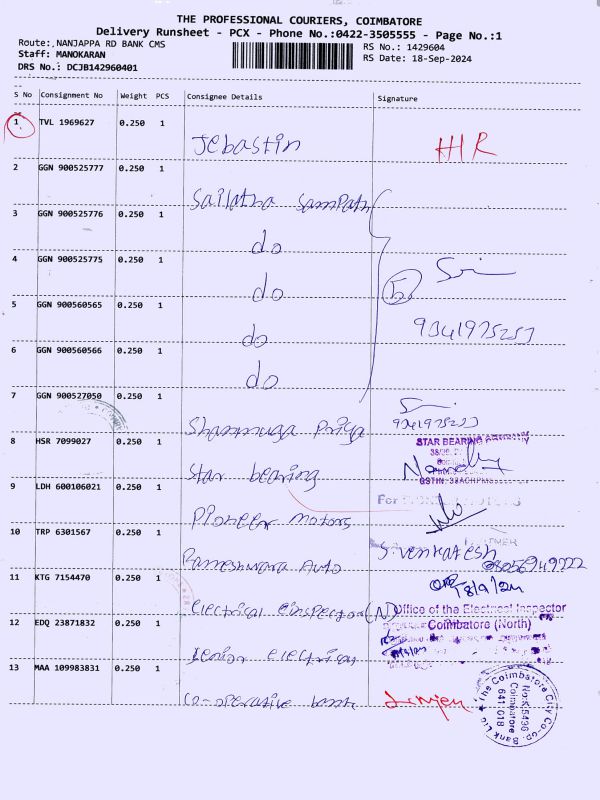 THE PROFESSIONAL COURIERS, COIMBATORE
Delivery Runsheet - PCX - Phone No.:0422-3505555 - Page No.:1
Route:,NANJAPPA RD BANK CMS
RS No.: 1429604
Staff: MANOKARAN
RS Date: 18-Sep-2024
DRS No.: DCJB142960401
S No Consignment No Weight PCS Consignee Details Signature
1 TVL 1969627 0.250 1
Jebastin HR
2 GGN 900525777 0.250 1
Sailatha Sampath
3 GGN 900525776 0.250 1
do
4 GGN 900525775 0.250 1
do 5
5 GGN 900560565 0.250 1
do 9341975257
6 GGN 900560566 0.250 1
do
7 GGN 900527050 0.250 1
Shanmuga Priya
8 HSR 7099027 0.250 1
STAR BEARING
Star bearing
9 LDH 600106021 0.250 1
For PIONEER MOTORS
Pioneer motors
10 TRP 6301567 0.250 1
Rameshwara Auto S.venkatesh
11 KTG 7154470 0.250 1
18/9/24
electrical einspector (N) Office of the Electrical Inspector
12 EDQ 23871832 0.250 1
Coimbatore (North)
Senior electrical
13 MAA 109983831 0.250 1
Co-operative bank
The Coimbatore City Co-op. Bank Ltd
No:K.5436
Coimbatore
641 018